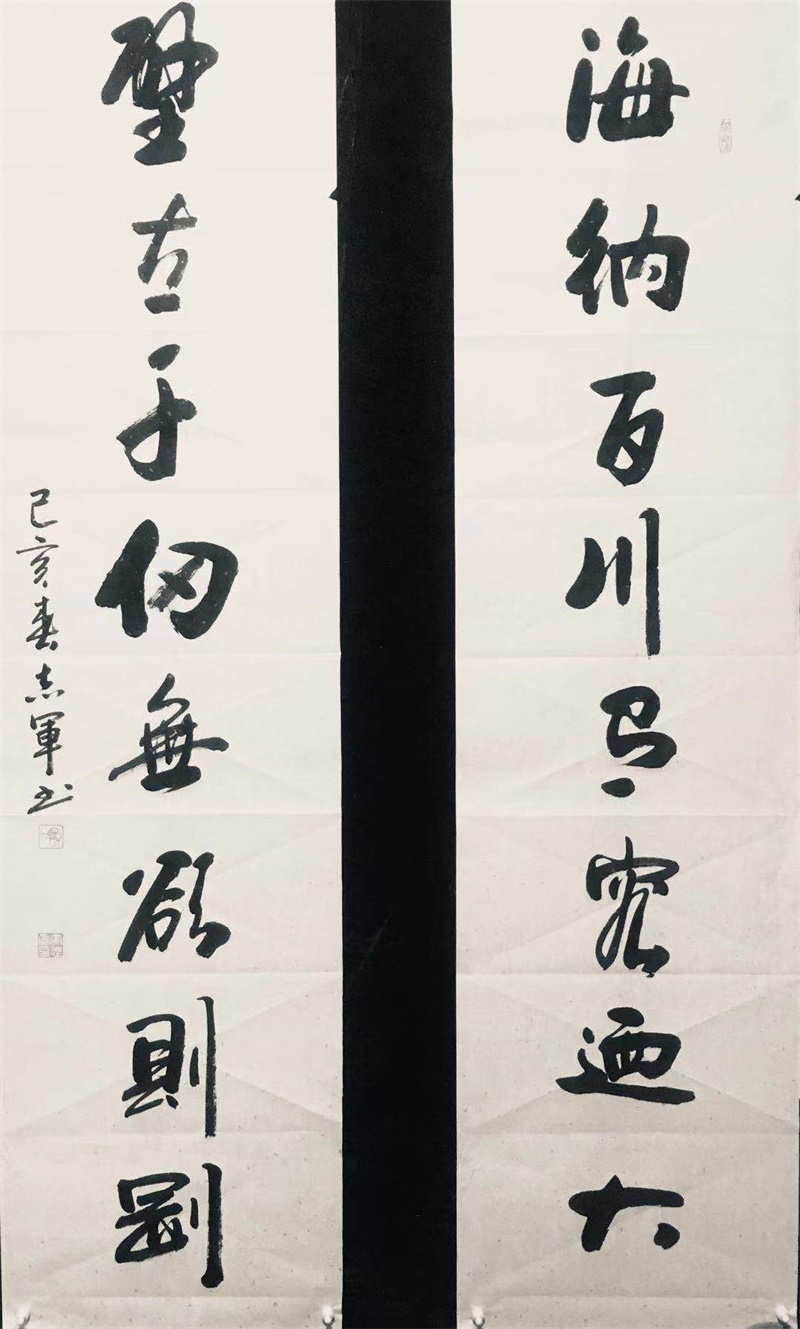 海納百川有容迺大
壁立千仞無欲則剛
己亥春志軍书